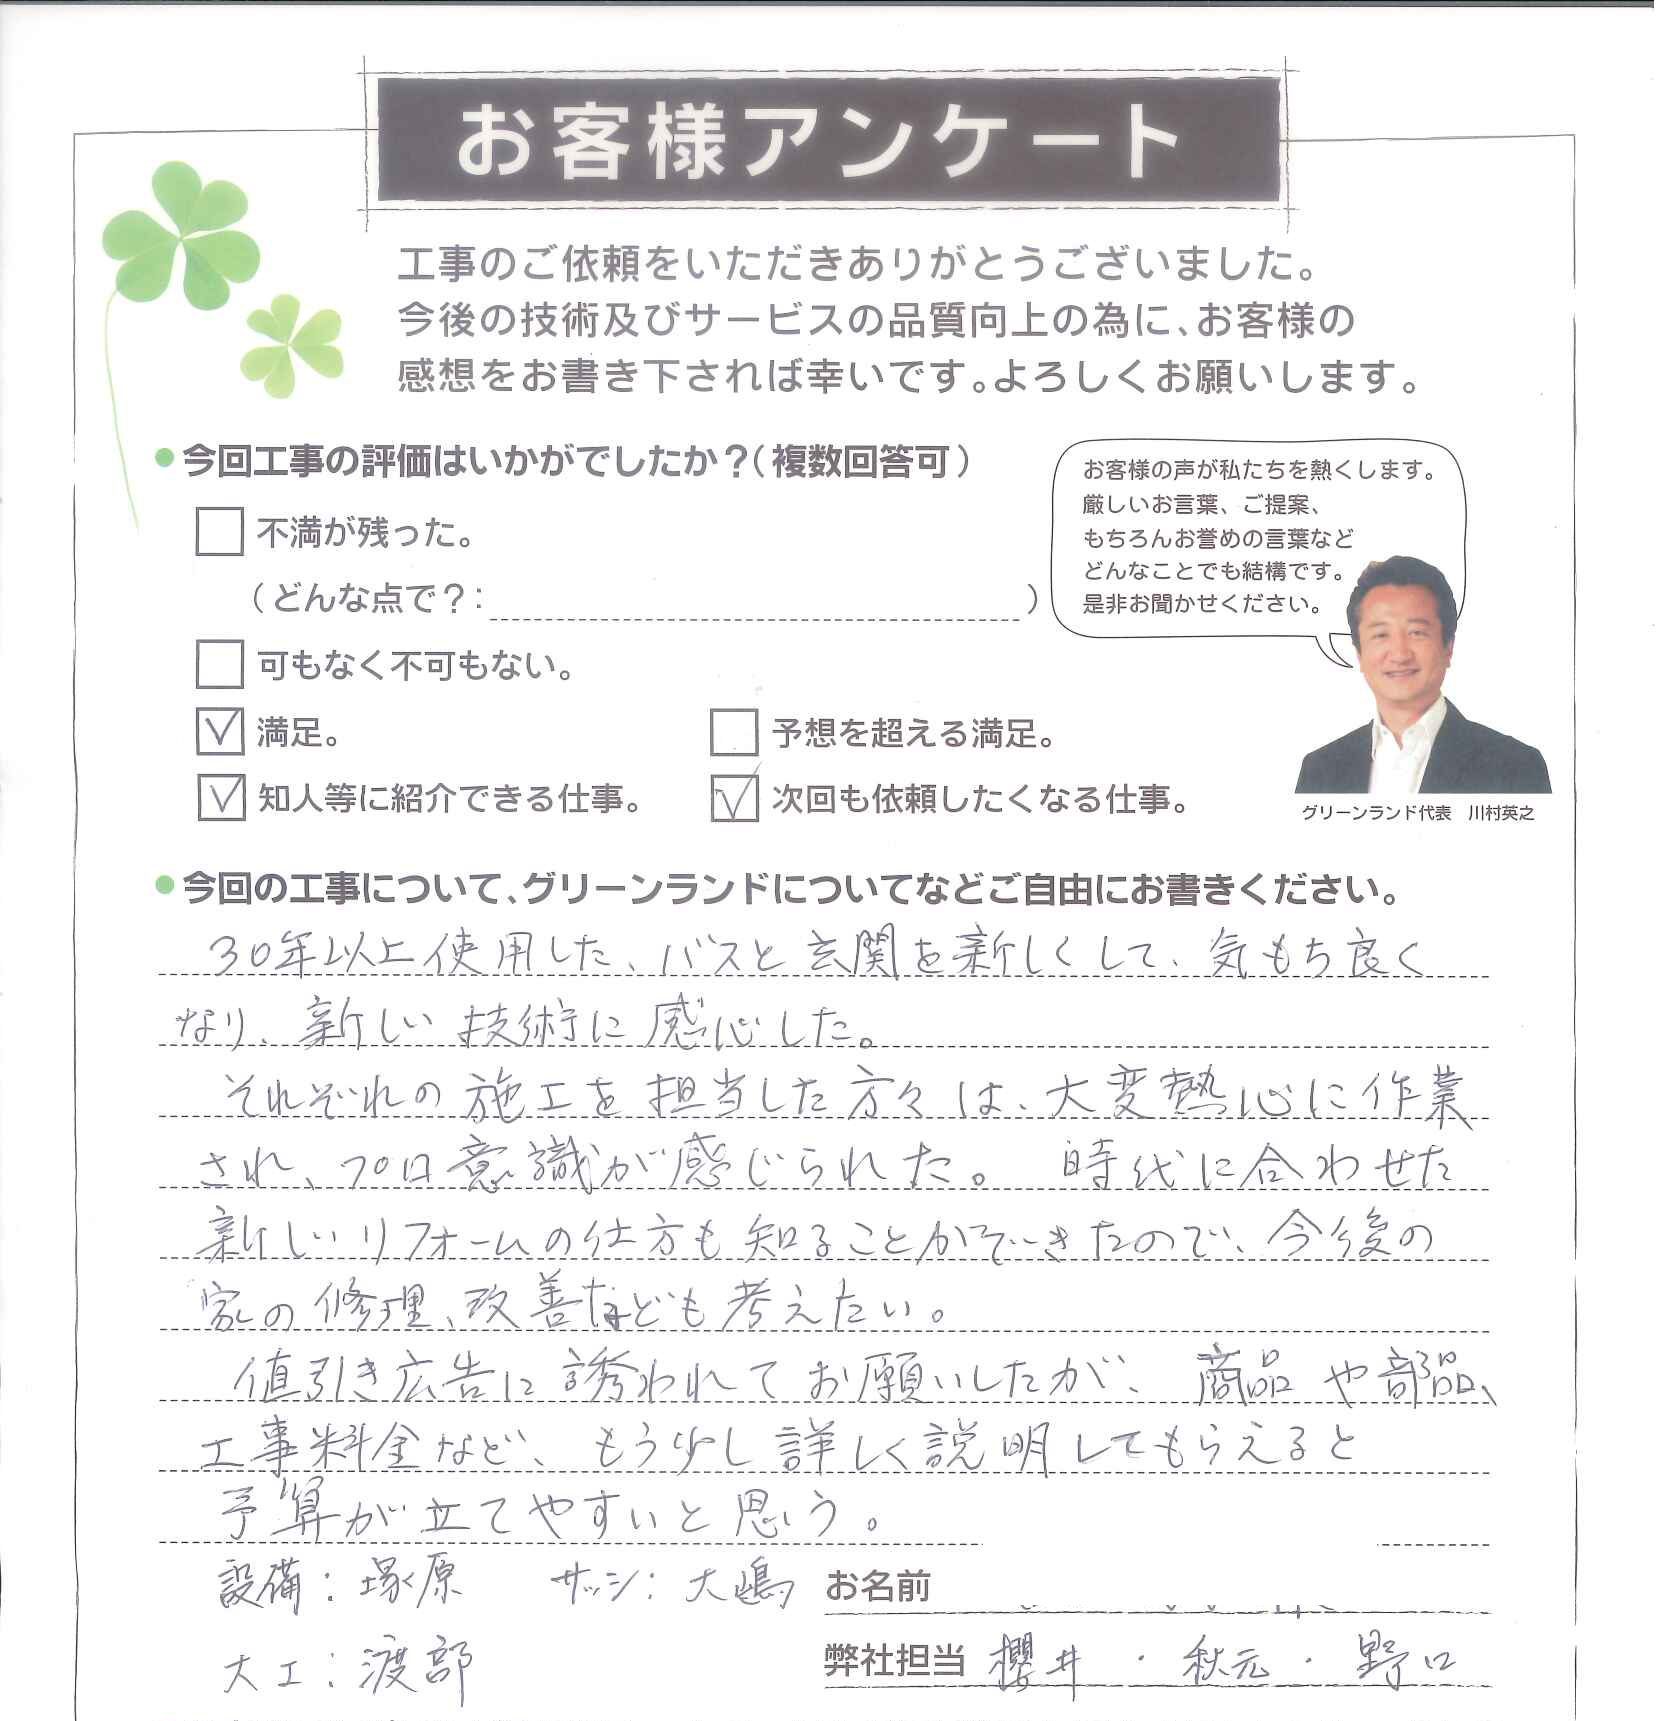 お客様アンケート
工事のご依頼をいただきありがとうございました。
今後の技術及びサービスの品質向上の為に、お客様の
感想をお書き下されば幸いです。よろしくお願いします。
●今回工事の評価はいかがでしたか？(複数回答可)
不満が残った。
(どんな点で？: )
可もなく不可もない。
満足。
予想を超える満足。
知人等に紹介できる仕事。
次回も依頼したくなる仕事。
お客様の声が私たちを熱くします。
厳しいお言葉、ご提案、
もちろんお誉めの言葉など
どんなことでも結構です。
是非お聞かせください。
グリーンランド代表 川村英之
●今回の工事について、グリーンランドについてなどご自由にお書きください。
30年以上使用した、バスと玄関を新しくして、気もち良く
なり、新しい技術に感心した。
それぞれの施工を担当した方々は、大変熱心に作業
され、プロ意識が感じられた。 時代に合わせた
新しいリフォームの仕方も知ることができたので、今後の
家の修理、改善なども考えたい。
値引き広告に誘われてお願いしたが、商品や部品、
工事料金など、もう少し詳しく説明してもらえると
予算が立てやすいと思う。
設備：塚原 サッシ：大嶋
お名前
大工：渡部
弊社担当 櫻井・秋元・野口